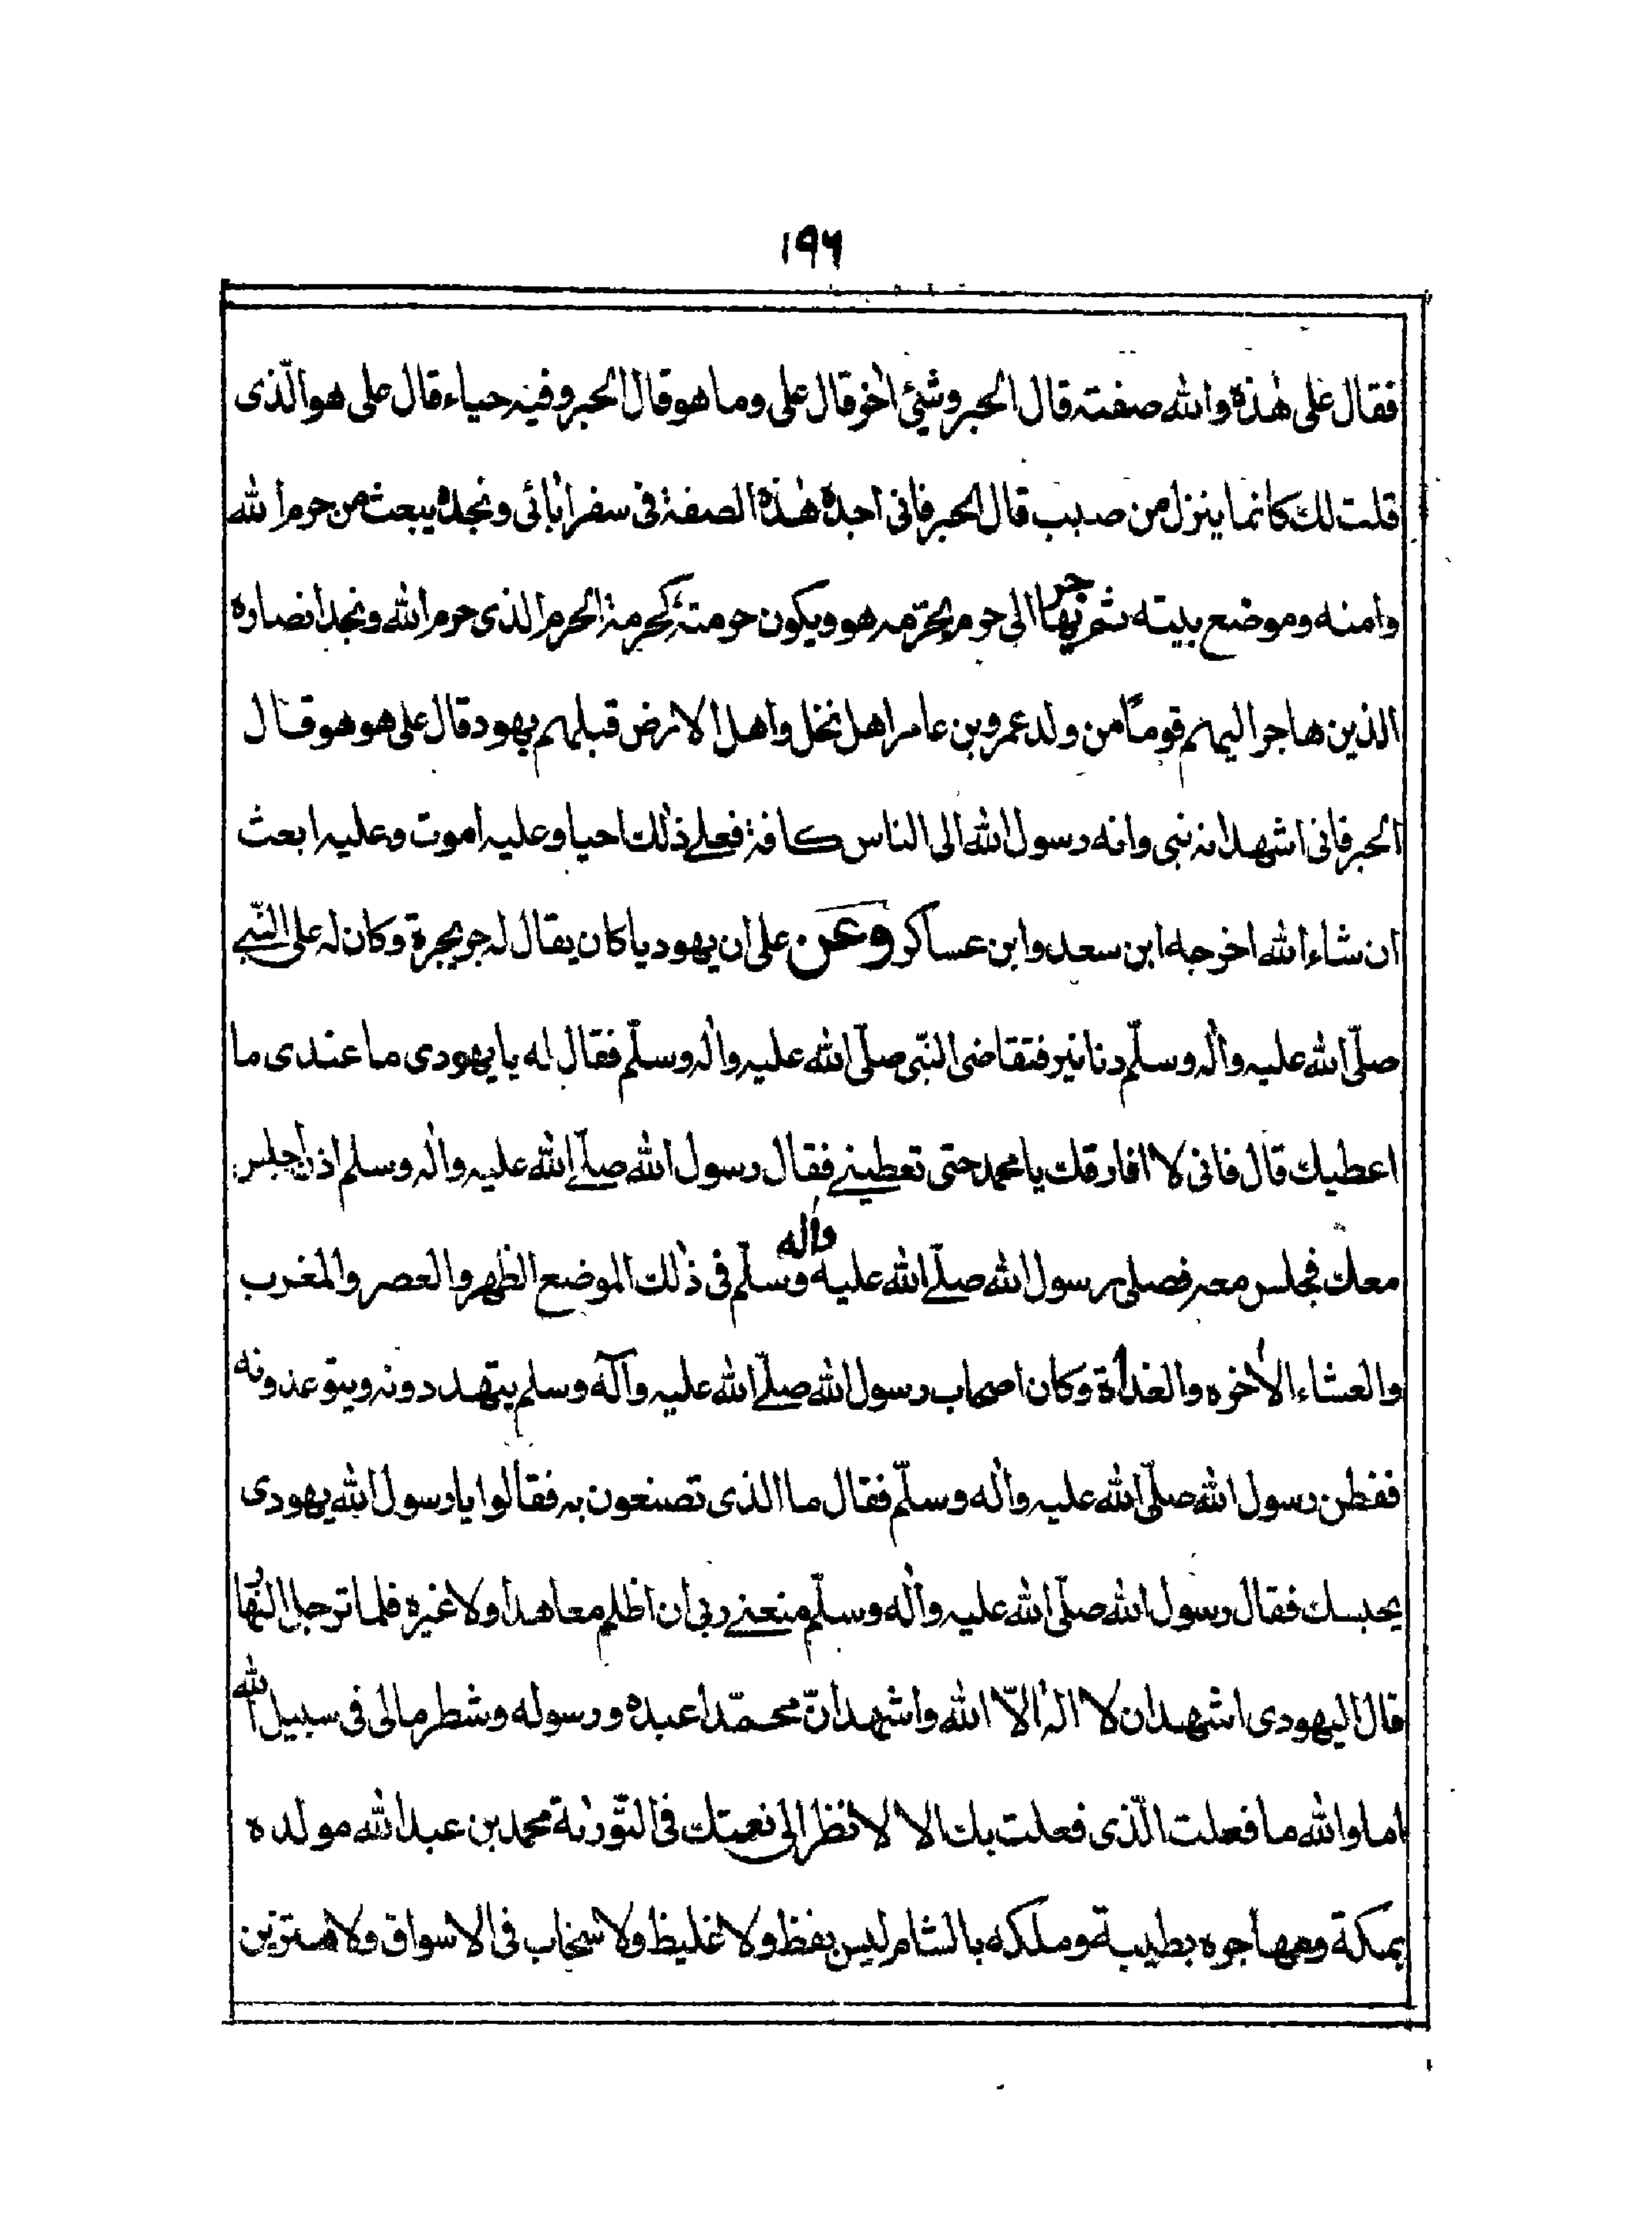 ١٩٦
فقال على هٰذه والله صفته قال الحبر وشئ اٰخر قال على وما هو قال الحبر وفيه حياء قال على هو الّذى
قلت لك كانما ينزل من صبب قال الحبر فانى اجده هٰذه الصفة فى سفر اٰبائى ونجده يبعث من حرم الله
وامنه وموضع بيته ثم يهاجر الى حرم يحرّمه هو ويكون حرمته كحرمة الحرم الذى حرم الله ونجد انصاره
الذين هاجر اليهم قومًا من ولد عمرو بن عامر اهل نخل واهل الارض قبلهم يهود قال على هو هو قال
الحبر فانى اشهد انه نبى وانه رسول الله الى الناس كافة فعلے ذٰلك احيا وعليه اموت وعليه ابعث
ان شاء الله اخرجه ابن سعد وابن عساكر وعن على ان يهوديا كان يقال له جريجرة وكان له على النّبے
صلّى الله عليه واٰله وسلّم دنانير فتقاضى النبّى صلّى الله عليه واٰله وسلّم فقال له يا يهودى ما عندى ما
اعطيك قال فانى لا افارقك يا محمد حتى تعطينے فقال رسول الله صلّے الله عليه واٰله وسلم اذن اجلس
معك فجلس معه فصلى رسول الله صلّے الله عليه واٰله وسلّم فى ذٰلك الموضع الظهر والعصر والمغرب
والعشاء الاٰخره والغداة وكان اصحاب رسول الله صلّے الله عليه وآله وسلم يتهددونه ويتوعدونه
ففطن رسول الله صلّى الله عليه واٰله وسلّم فقال ما الذى تصنعون به فقالوا يا رسول الله يهودى
يحبسك فقال رسول الله صلّى الله عليه واٰله وسلّم منعنے ربى ان اظلم معاهدا ولا غيره فلما ترجل النهار
قال اليهودى اشهد ان لا الٰه الّا الله واشهد انّ محمّدا عبده ورسوله وشطر مالى فى سبيل الله
اما والله ما فعلت الّذى فعلت بك الا لانظر الى نعتك فى التّورٰىة محمد بن عبد الله مولده
بمكة ومهاجره بطيبة وملكه بالشام ليس بفظ ولا غليظ ولا سخاب فى الاسواق ولا متزين